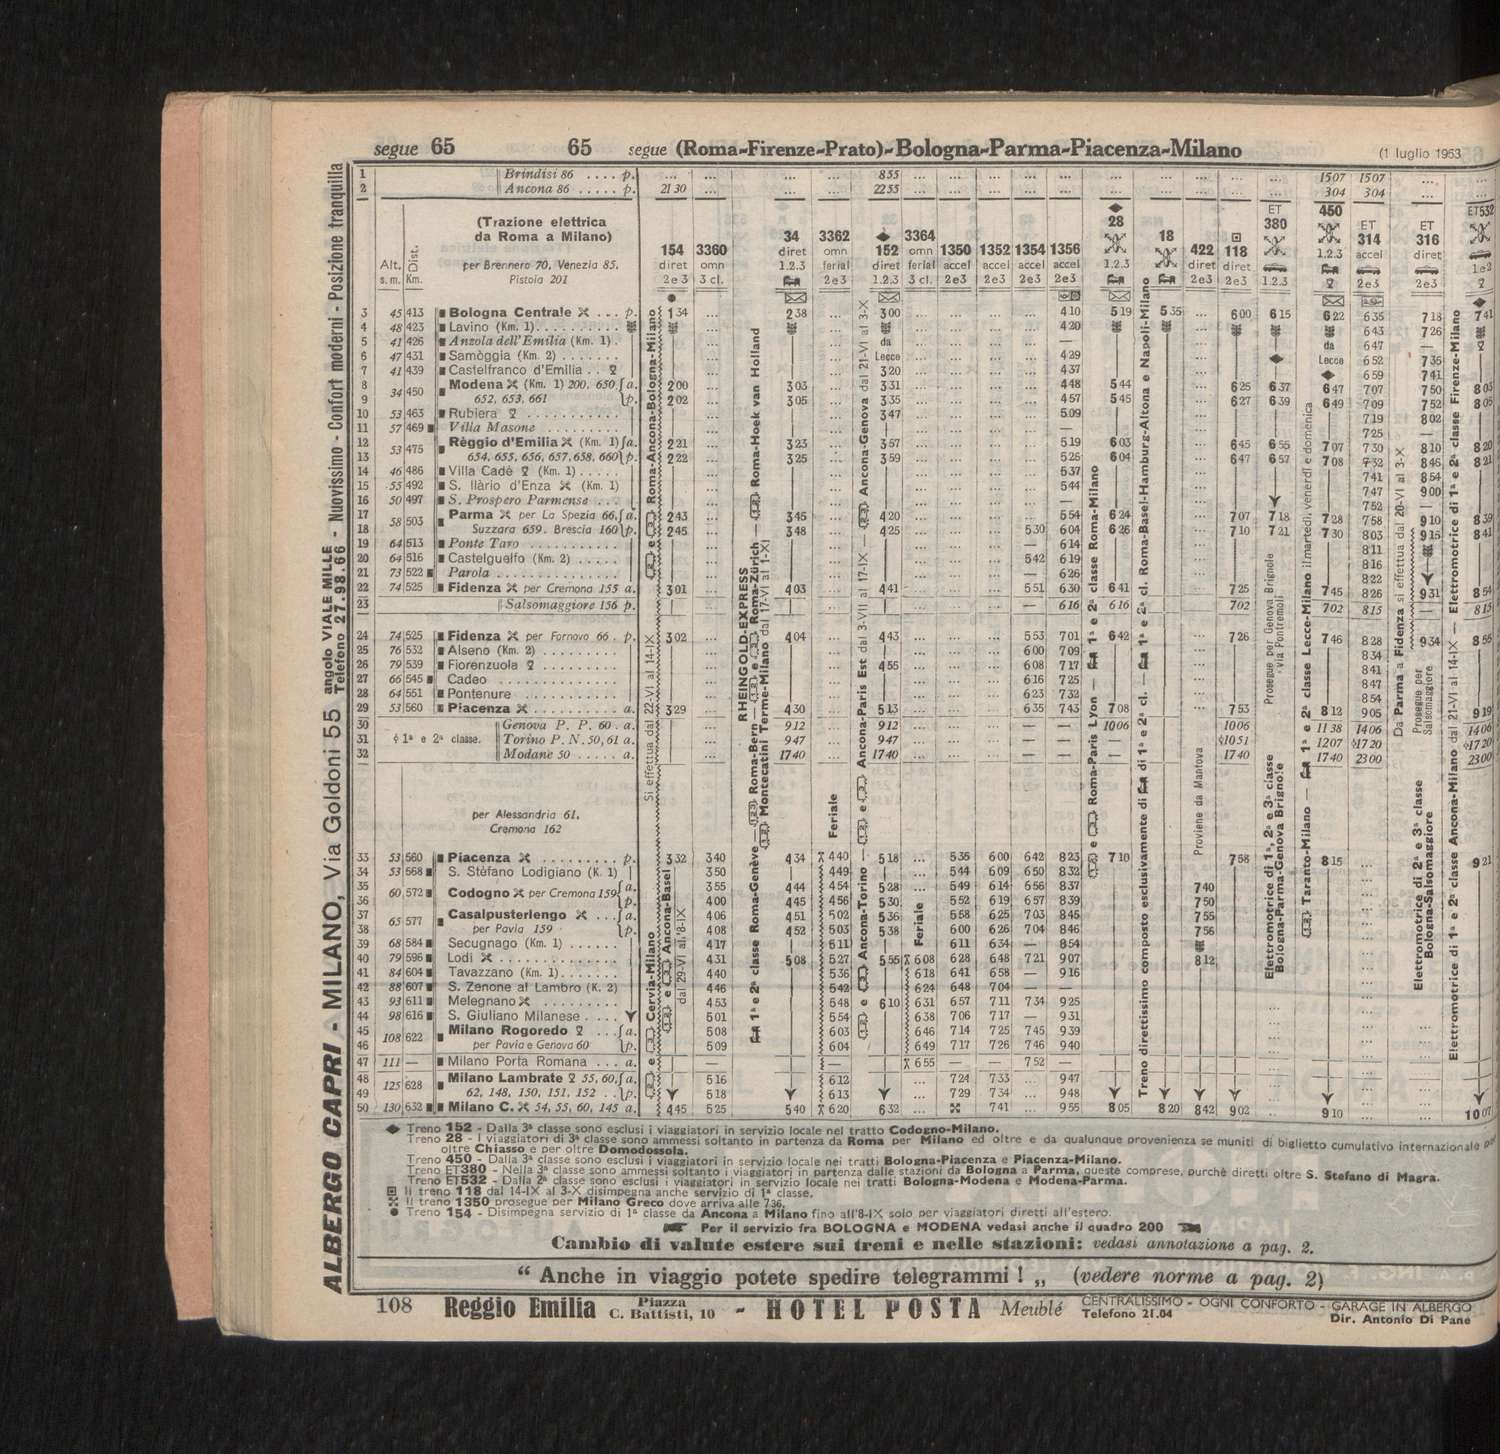 segue 65 65 segue (Roma-Firenze-Prato)-Bologna-Parma-Piacenza-Milano (1 luglio 1953
1 Brindisi 86 .... p. ... ... ... ... 855 ... ... ... ... ... ... ... ... ... ... 1507 1507 ... ...
2 Ancona 86 ..... p. 2130 ... ... ... 2255 ... ... ... ... ... ... ... ... ... ... 304 304 ... ...
(Trazione elettrica
da Roma a Milano)
Alt. s. m. Dist. Km. per Brennero 70, Venezia 85,
Pistoia 201
154 3360 34 3362 152 3364 1350 1352 1354 1356 28 18 422 118 ET 380 450 ET 314 ET 316 ET532
diret omn diret omn diret omn accel accel accel accel 1.2.3 diret diret 1.2.3 accel diret 1e2
2e3 3 cl. 1.2.3 ferial 2e3 1.2.3 ferial 3 cl. 2e3 2e3 2e3 2e3 2e3 2e3 1.2.3 2e3 2e3
3 45 413 Bologna Centrale ... p. 134 ... 238 ... 300 ... ... ... ... 410 519 535 ... 600 615 622 635 718 741
4 48 423 Lavino (Km. 1) ... 420 643 726
5 41 426 Anzola dell'Emilia (Km. 1) . da — da 647 —
6 47 431 Samòggia (Km. 2) ....... Lecce 429 Lecce 652 735
7 41 439 Castelfranco d'Emilia . . 320 437 659 741
8 34 450 Modena (Km. 1) 200, 650, a. 200 303 331 448 544 625 637 647 707 750 805
9 652, 653, 661 p. 202 305 335 457 545 627 639 649 709 752 806
10 53 463 Rubiera ........... 347 509 719 802
11 57 469 Villa Masone ........ — 725 —
12 53 475 Règgio d'Emilia (Km. 1) a. 221 323 357 519 603 645 655 707 730 810 820
13 654, 655, 656, 657, 658, 660 p. 222 325 359 525 604 647 657 708 732 846 821
14 46 486 Villa Cadè (Km. 1) ..... 537 741 854
15 55 492 S. Ilàrio d'Enza (Km. 1) 544 747 900
16 50 497 S. Prospero Parmense ... — 752 —
17 58 503 Parma per La Spezia 66, a. 243 345 420 554 624 707 718 728 758 910 839
18 Suzzara 659. Brescia 160 p. 245 348 425 530 604 626 710 721 730 803 915 841
19 64 513 Ponte Taro .......... — 614 811
20 64 516 Castelguelfo (Km. 2) ..... 542 619 816
21 73 522 Parola ............. — 626 822
22 74 525 Fidenza per Cremona 155 a. 301 403 441 551 630 641 725 745 826 931 854
23 Salsomaggiore 156 p. — 616 616 702 702 815 — 815
24 74 525 Fidenza per Fornovo 66 . p. 302 ... 404 ... 443 ... ... ... 553 701 642 726 746 828 934 855
25 76 532 Alseno (Km. 2) ........ 600 709 834
26 79 539 Fiorenzuola ......... 455 608 717 841
27 66 545 Cadeo ............ 616 725 847
28 64 551 Pontenure ........... 623 732 854
29 53 560 Piacenza .......... a. 329 430 513 635 743 708 753 812 905 919
30 Genova P. P. 60 . a. 912 912 — — 1006 1006 1138 1406 1406
31 1ª e 2ª classe. Torino P. N. 50, 61 a. 947 947 — — 1051 1207 1720 1720
32 Modane 50 ..... a. 1740 1740 — — 1740 1740 2300 2300
per Alessandria 61,
Cremona 162
33 53 560 Piacenza ......... p. 332 340 434 440 518 ... 535 600 642 823 710 758 815 921
34 53 568 S. Stèfano Lodigiano (K. 1) 350 449 544 609 650 832
35 60 572 Codogno per Cremona 159 a. 355 444 454 528 549 614 656 837 740
36 p. 400 445 456 530 552 619 657 839 750
37 65 577 Casalpusterlengo ... a. 406 451 502 536 558 625 703 845 755
38 per Pavia 159 ..... p. 408 452 503 538 600 626 704 846 756
39 68 584 Secugnago (Km. 1) ...... 417 611 611 634 — 854
40 79 596 Lodi ............... 431 508 527 555 608 628 648 721 907 812
41 84 604 Tavazzano (Km. 1) ....... 440 536 618 641 658 — 916
42 88 607 S. Zenone al Lambro (K. 2) 446 542 624 648 704 — —
43 93 611 Melegnano ......... 453 548 610 631 657 711 734 925
44 98 616 S. Giuliano Milanese .... 501 554 638 706 717 — 931
45 108 622 Milano Rogoredo ... a. 508 603 646 714 725 745 939
46 per Pavia e Genova 60 p. 509 604 649 717 726 746 940
47 111 — Milano Porta Romana ... a. — — — 655 — — 752 —
48 125 628 Milano Lambrate 55, 60, a. 516 612 724 733 947
49 62, 148, 150, 151, 152 .. p. 518 613 729 734 948
50 130 632 Milano C. 54, 55, 60, 145 a. 445 525 540 620 632 741 955 805 820 842 902 910 1007
Roma-Ancona-Bologna-Milano
Si effettua dal 22-VI al 14-IX
Cervia-Milano
e Ancona-Basel
dal 29-VI al 8-IX
RHEINGOLD-EXPRESS
1ª e 2ª classe Roma-Genève — Roma-Bern — e Roma-Zürich — Roma-Hoek van Holland
Montecatini Terme-Milano dal 17-VI al 1-XI
Feriale
e Ancona-Torino — e Ancona-Paris Est dal 3-VII al 17-IX — Ancona-Genova dal 21-VI al 3-X
Feriale
e Roma-Paris Lyon — 1ª e 2ª classe Roma-Milano
Treno direttissimo composto esclusivamente di di 1ª e 2ª cl. — 1ª e 2ª cl. Roma-Basel-Hamburg-Altona e Napoli-Milano
Proviene da Mantova
Elettromotrice di 1ª, 2ª e 3ª classe
Bologna-Parma-Genova Brignole
Prosegue per Genova Brignole
via Pontremoli
Taranto-Milano — 1ª e 2ª classe Lecce-Milano il martedì, venerdì e domenica
Da Parma a Fidenza si effettua dal 28-VI al 3-X
Elettromotrice di 2ª e 3ª classe
Bologna-Salsomaggiore
Prosegue per
Salsomaggiore
Elettromotrice di 1ª e 2ª classe Ancona-Milano dal 21-VI al 14-IX — Elettromotrice di 1ª e 2ª classe Firenze-Milano
Treno 152 - Dalla 3ª classe sono esclusi i viaggiatori in servizio locale nel tratto Codogno-Milano.
Treno 28 - I viaggiatori di 3ª classe sono ammessi soltanto in partenza da Roma per Milano ed oltre e da qualunque provenienza se muniti di biglietto cumulativo internazionale
oltre Chiasso e per oltre Domodossola.
Treno 450 - Dalla 3ª classe sono esclusi i viaggiatori in servizio locale nei tratti Bologna-Piacenza e Piacenza-Milano.
Treno ET380 - Nella 3ª classe sono ammessi soltanto i viaggiatori in partenza dalle stazioni da Bologna a Parma, queste comprese, purchè diretti oltre S. Stefano di Magra.
Treno ET532 - Dalla 2ª classe sono esclusi i viaggiatori in servizio locale nei tratti Bologna-Modena e Modena-Parma.
Il treno 118 dal 14-IX al 3-X disimpegna anche servizio di 1ª classe.
Il treno 1350 prosegue per Milano Greco dove arriva alle 736.
Treno 154 - Disimpegna servizio di 1ª classe da Ancona a Milano fino all'8-IX solo per viaggiatori diretti all'estero.
Per il servizio fra BOLOGNA e MODENA vedasi anche il quadro 200
Cambio di valute estere sui treni e nelle stazioni: vedasi annotazione a pag. 2.
“ Anche in viaggio potete spedire telegrammi ! „ (vedere norme a pag. 2)
108 Reggio Emilia Piazza C. Battisti, 10 - HOTEL POSTA Meublé CENTRALISSIMO - OGNI CONFORTO - GARAGE IN ALBERGO
Telefono 21.04 Dir. Antonio Di Pane
ALBERGO CAPRI - MILANO, Via Goldoni 55 angolo VIALE MILLE - Nuovissimo - Confort moderni - Posizione tranquilla
Telefono 27.98.66